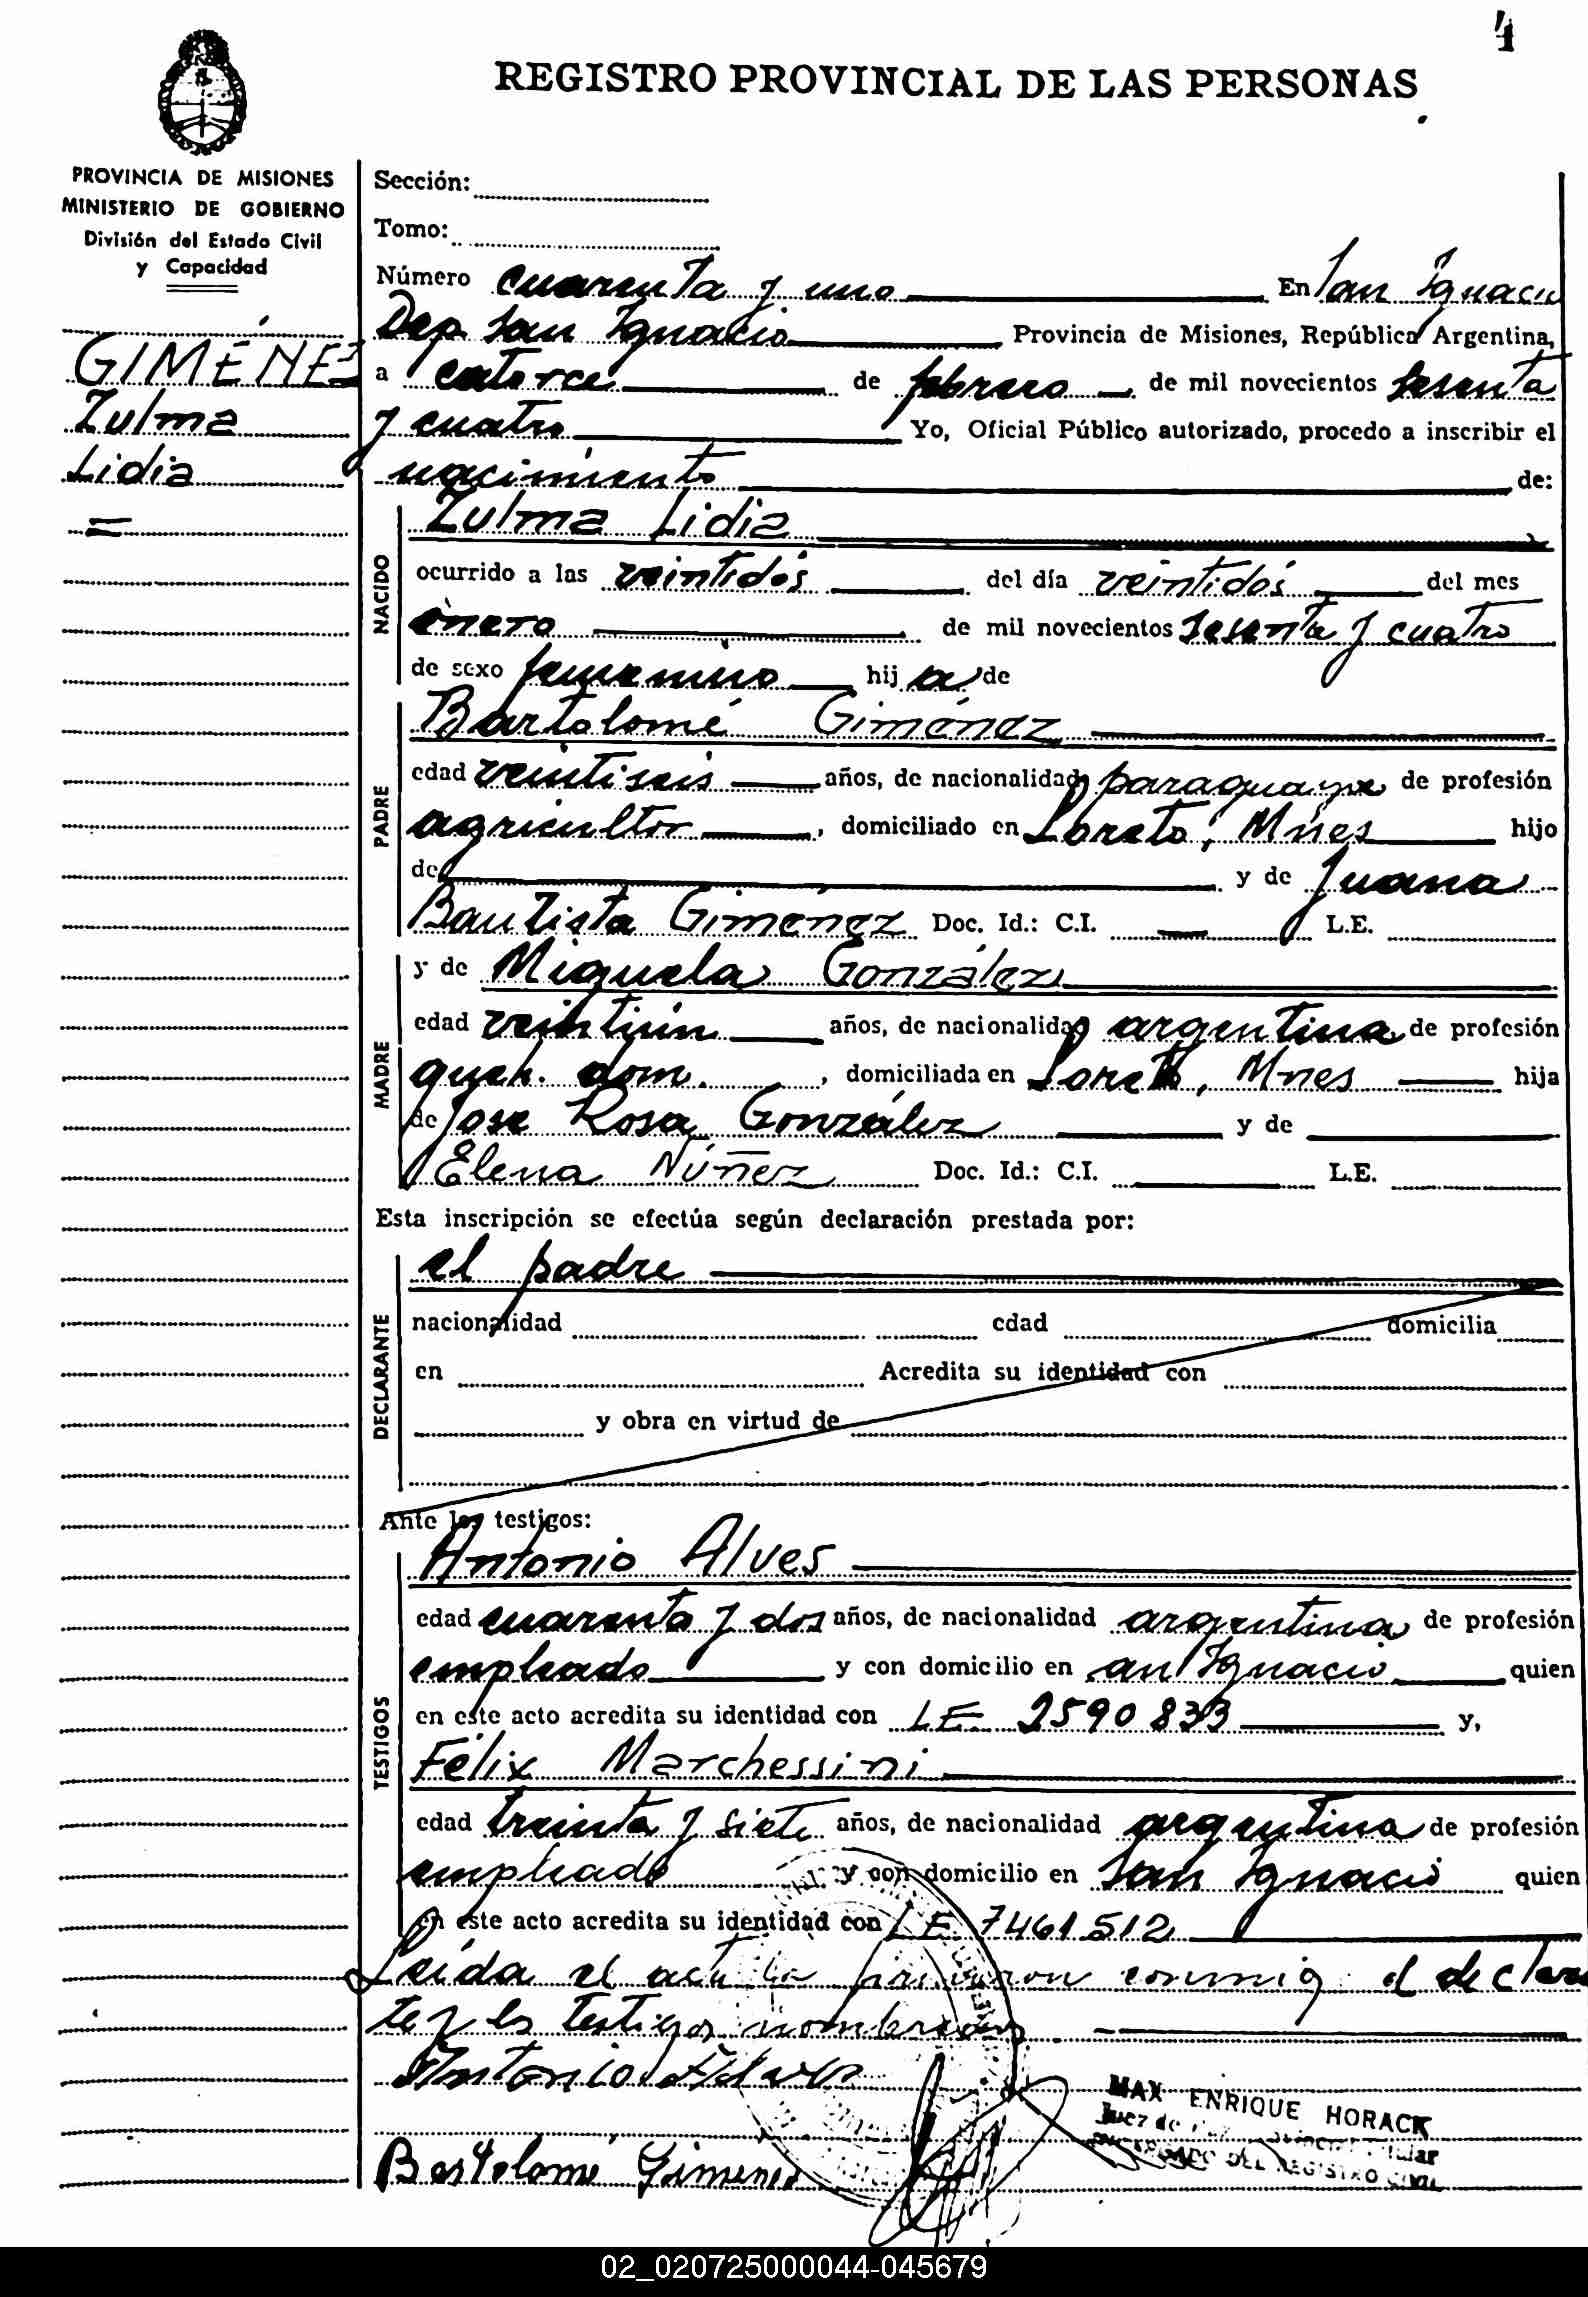 4
REGISTRO PROVINCIAL DE LAS PERSONAS
PROVINCIA DE MISIONES
MINISTERIO DE GOBIERNO
División del Estado Civil
y Capacidad
GIMÉNEZ
Zulma
Lidia
=
Sección:
Tomo:
Número cuarenta y uno En San Ignacio
Dep San Ignacio Provincia de Misiones, República Argentina,
a catorce de febrero de mil novecientos sesenta
y cuatro Yo, Oficial Público autorizado, procedo a inscribir el
nacimiento de:
NACIDO
Zulma Lidia
ocurrido a las veintidós del día veintidós del mes
enero de mil novecientos sesenta y cuatro
de sexo femenino hij a de
PADRE
Bartolomé Giménez
edad veintiseis años, de nacionalidad paraguaya de profesión
agricultor, domiciliado en Loreto, Mnes hijo
de y de Juana
Bautista Giménez Doc. Id.: C.I. L.E.
MADRE
y de Miguela González
edad veintiún años, de nacionalidad argentina de profesión
queh. dom. , domiciliada en Loreto, Mnes hija
de Jose Rosa González y de
Elena Núñez Doc. Id.: C.I. L.E.
Esta inscripción se efectúa según declaración prestada por:
DECLARANTE
el padre
nacionalidad edad domicilia
en Acredita su identidad con
y obra en virtud de
Ante los testigos:
TESTIGOS
Antonio Alves
edad cuarenta y dos años, de nacionalidad argentina de profesión
empleado y con domicilio en an Ignacio quien
en este acto acredita su identidad con L.E. 2590833 y,
Félix Marchessini
edad treinta y siete años, de nacionalidad argentina de profesión
empleado y con domicilio en San Ignacio quien
en este acto acredita su identidad con L.E. 7461512
Leída el acta la firmaron conmigo el declaran
te y los testigos nombrados
Antonio Alves
MAX ENRIQUE HORACK
Juez de
DEL REGISTRO CIVIL
Bartolomé Gimenez
02_020725000044-045679